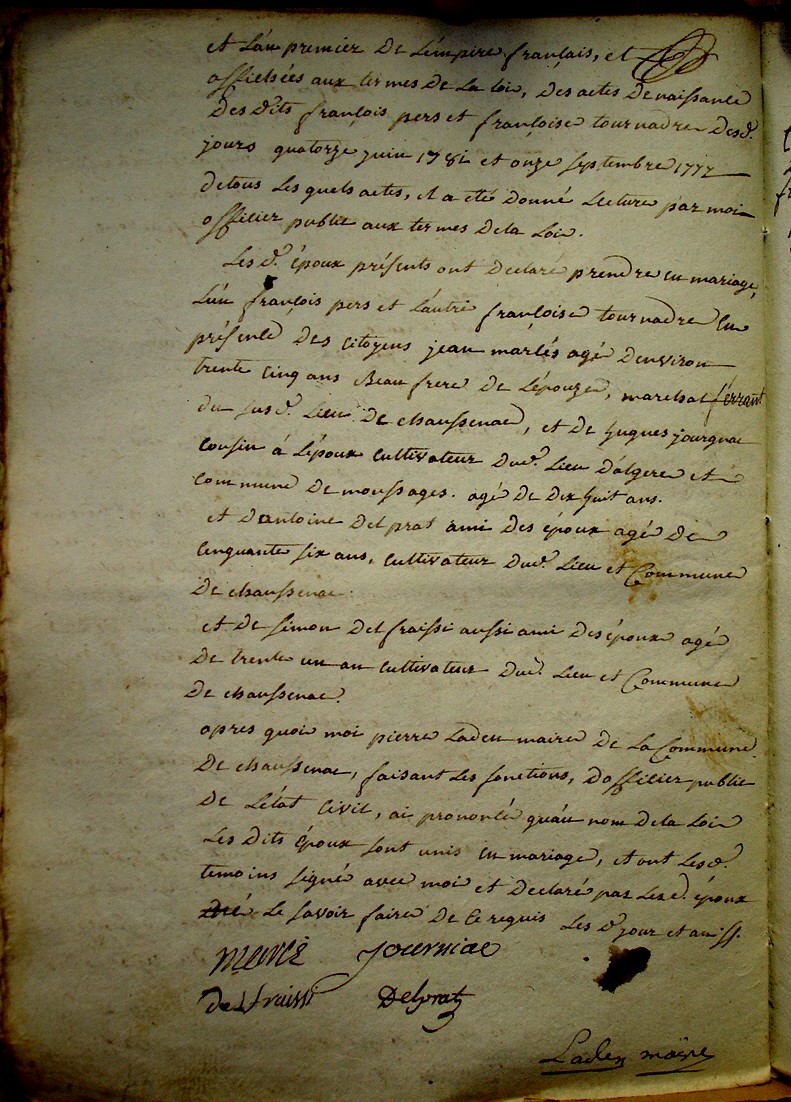 et l'an premier de l'empire français, et
affichées aux termes de la loi, des actes de naissance
des dits françois pers et françoise tournadre des d.
jours quatorze juin 1781 et onze septembre 1777
de tous les quels actes, il a été donné lecture par moi
officier public aux termes de la loi.
Les d. époux présents ont declaré prendre en mariage,
L'un françois pers et l'autre françoise tournadre en
présence des citoyens jean martés agé d'environ
trente cinq ans Beau frere de L'épouze, marechal férrant
du sus d. Lieu de chaussenac, et de hugues journiac
cousin à L'époux cultivateur du d. Lieu d'algere et
commune de moussages. agé de dix huit ans.
et d'antoine delprat ami des époux agé de
cinquante six ans, cultivateur du d. Lieu et commune
de chaussenac.
et de simon delfraissi aussi ami des époux agé
de trente un an cultivateur du d. Lieu et commune
de chaussenac.
apres quoi moi pierre Laden maire de la commune
de chaussenac, faisant les fonctions, d'officier public
de L'état civil, ai prononcé qu'au nom de la loi
Les dits époux sont unis en mariage, et ont les d.
temoins signé avec moi et declaré par les d. époux
ne le savoir faire de ce requis Les d. jour et an
journiac
delfraissi Delprat
Laden maire